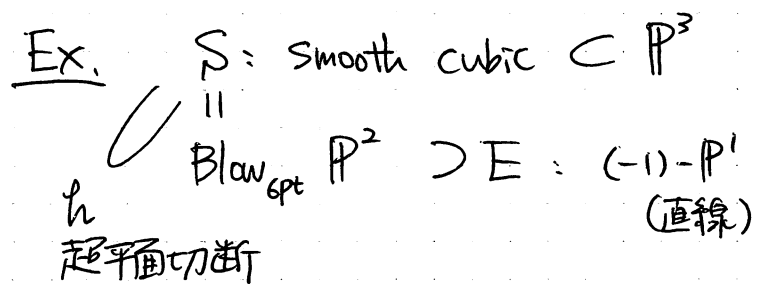 Ex. S: smooth cubic ⊂ ℙ³
||
Blow_{6pt} ℙ² ⊃ E : (-1)-ℙ¹
(直線)
h
超平面切断